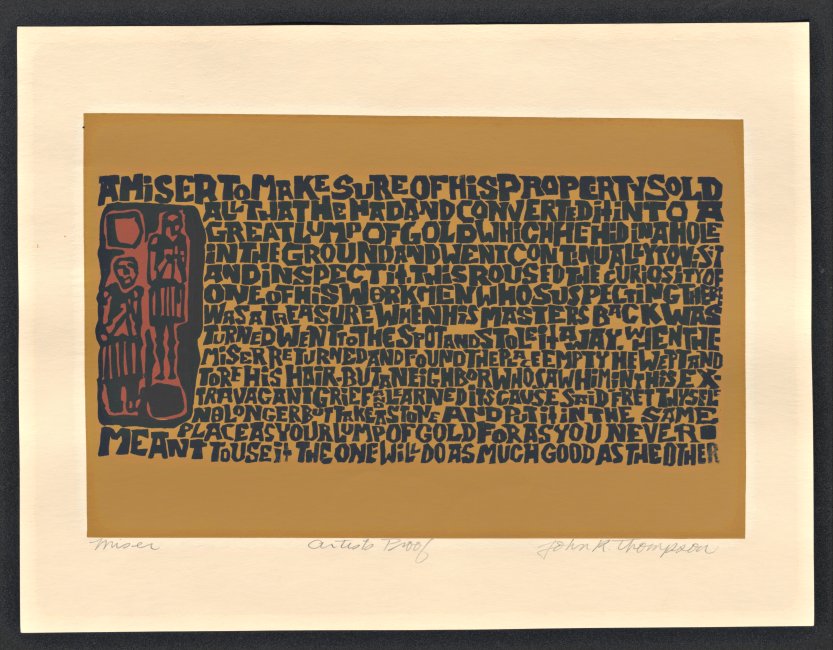 A MISER TO MAKE SURE OF HIS PROPERTY SOLD
ALL THAT HE HAD AND CONVERTED it iNTO A
GREAT LUMP OF GOLD WHICH HE HiD iN A HOLE
iN THE GROUND AND WENT CONTINUALLY TO Vi-SiT
AND iNSPECT it THiS ROUSED THE CURIOSiTY OF
ONE OF HiS WORKMEN WHO SUSPECTiNG THERE
WAS A TREASURE WHEN HiS MASTERS BACK WAS
TURNED WENT TO THE SPOT AND STOLE it AWAY. WHEN THE
MiSER RETURNED AND FOUND THE PLACE EMPTY HE WEPT AND
TORE HiS HAiR-BUT A NEiGHBOR WHO SAW HiM iN THiS EX-
TRAVAGANT GRiEF AND LEARNED iTS CAUSE SAiD FRET THYSELF
NO LONGER BUT TAKE A STONE AND PUT iT iN THE SAME
PLACE AS YOUR LUMP OF GOLD FOR AS YOU NEVER
MEANT TO USE it THE ONE WiLL DO AS MUCH GOOD AS THE OTHER
Miser Artists Proof John R. Thompson